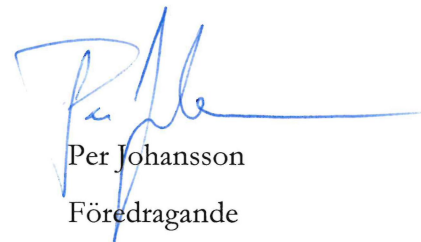 Per Johansson
Föredragande